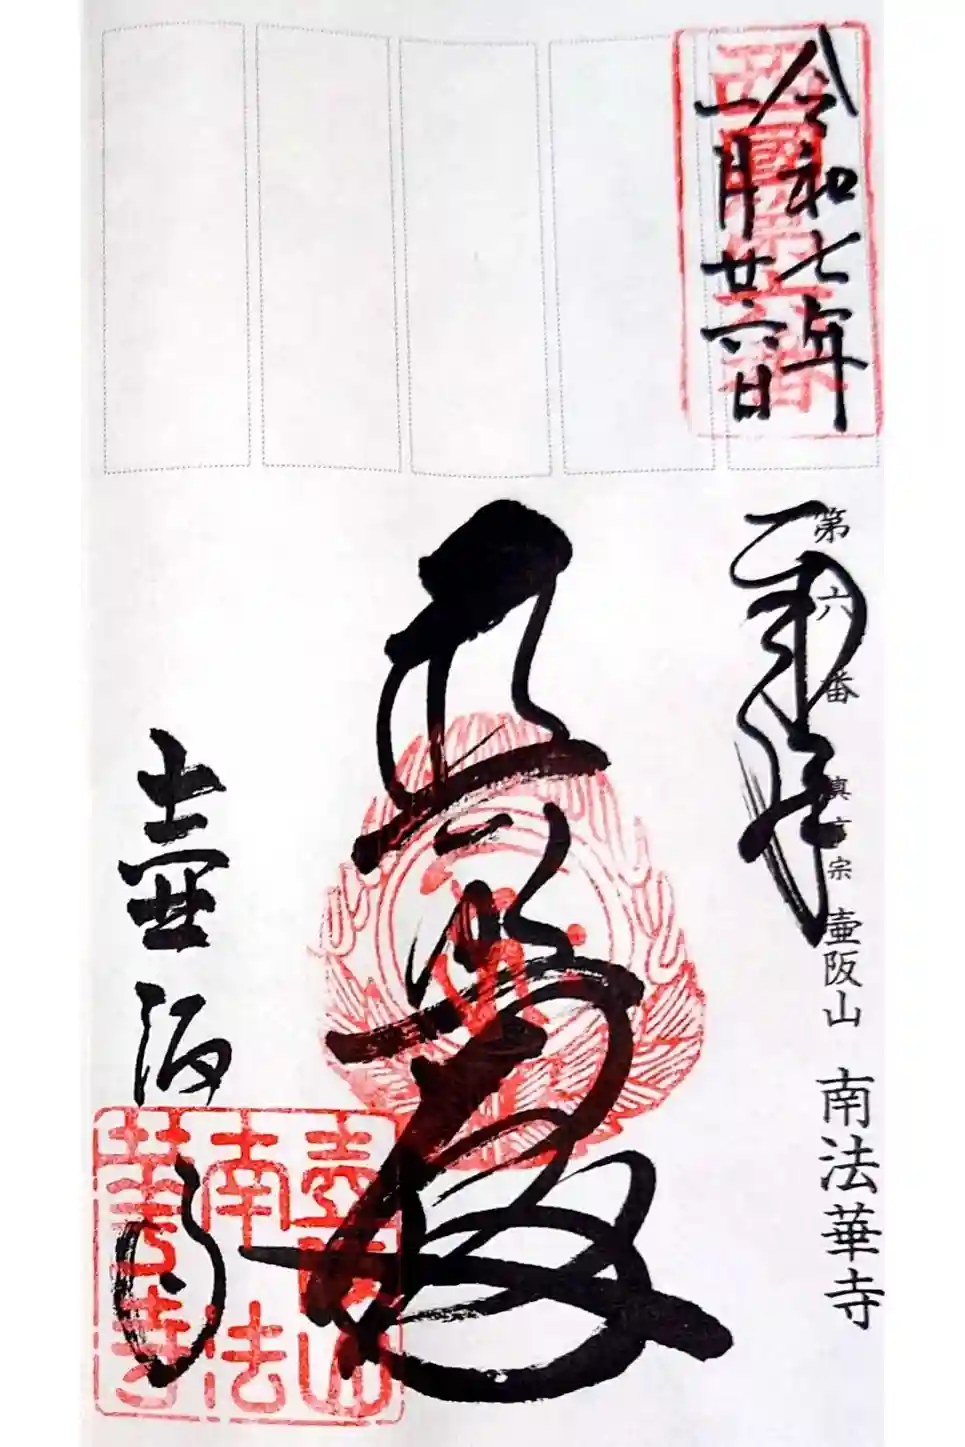 令和七年
一月廿六日
西國第六番
第六番 真言宗 壷阪山 南法華寺
奉拝
普照殿
壷阪寺
壷阪山
南法
華寺